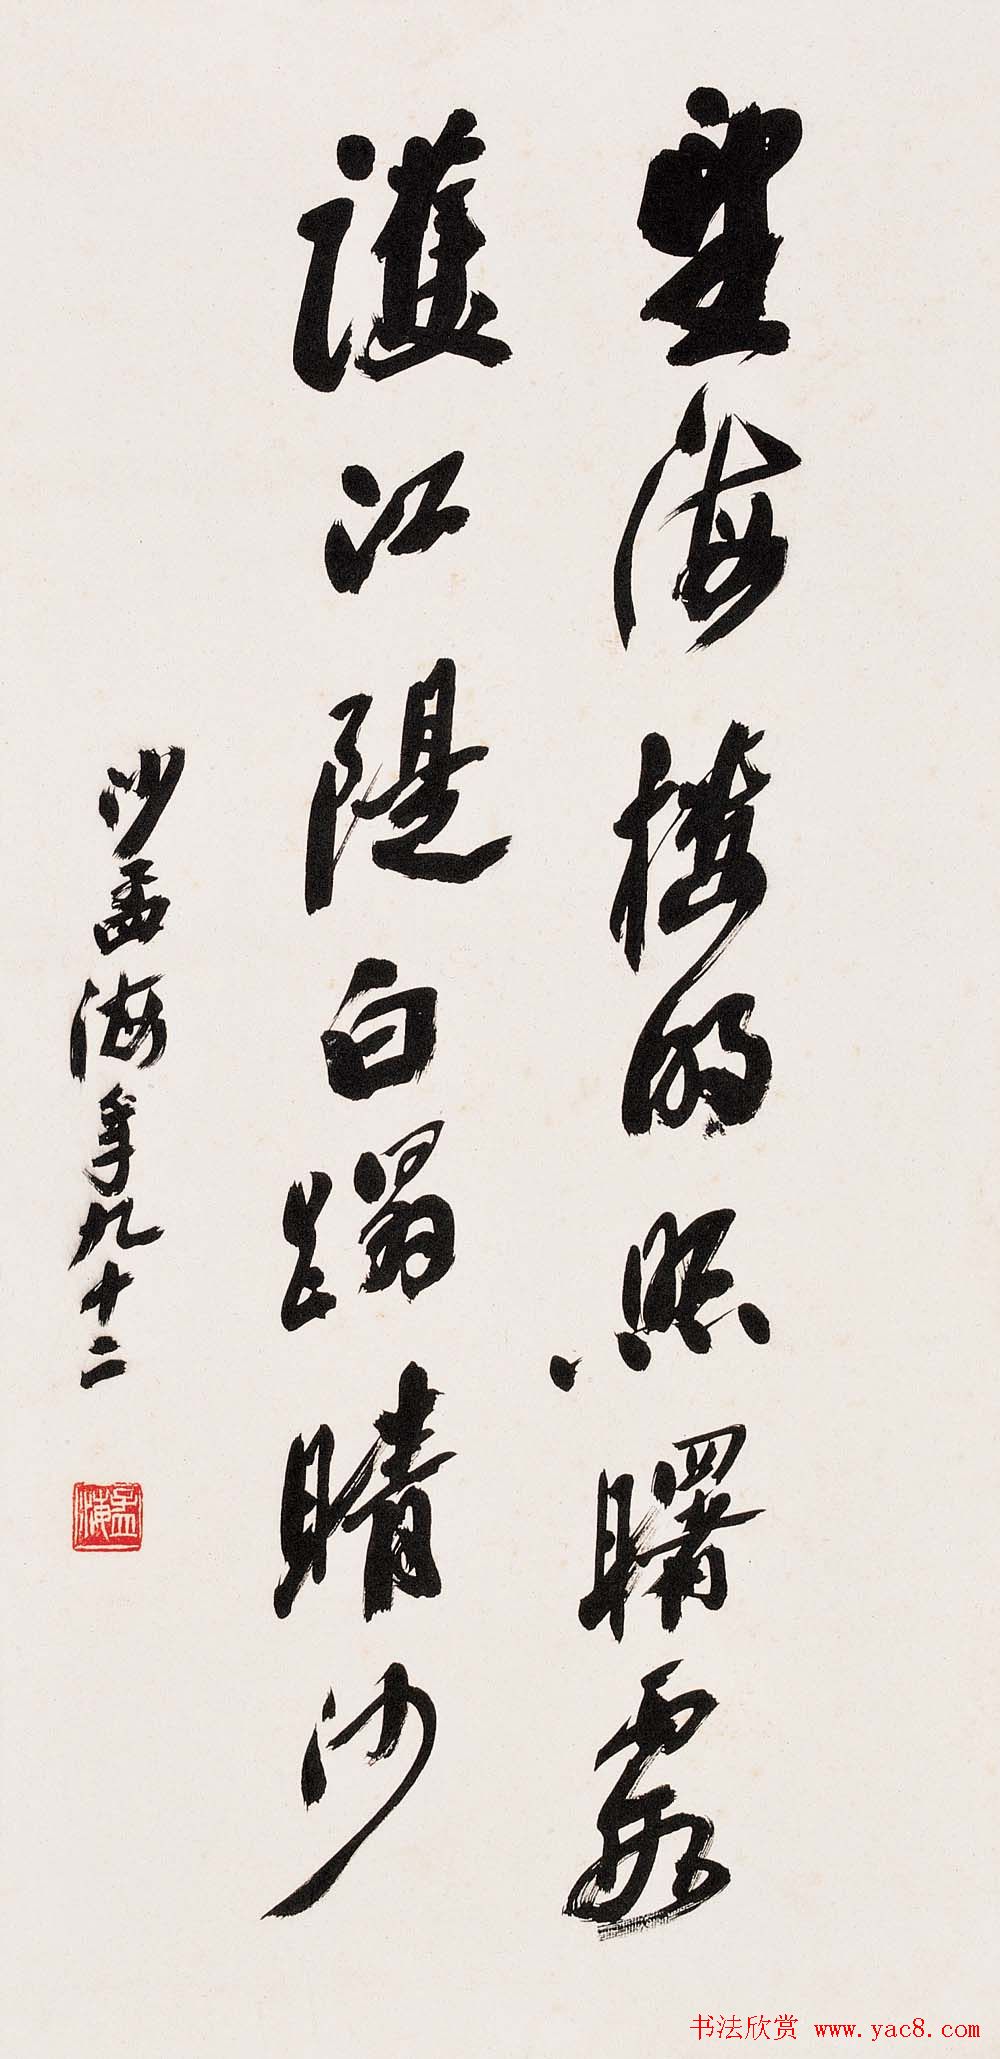 望海樓明照曙霞
護江隄白蹋晴沙
沙孟海年九十二
孟海
书法欣赏 www.yac8.com